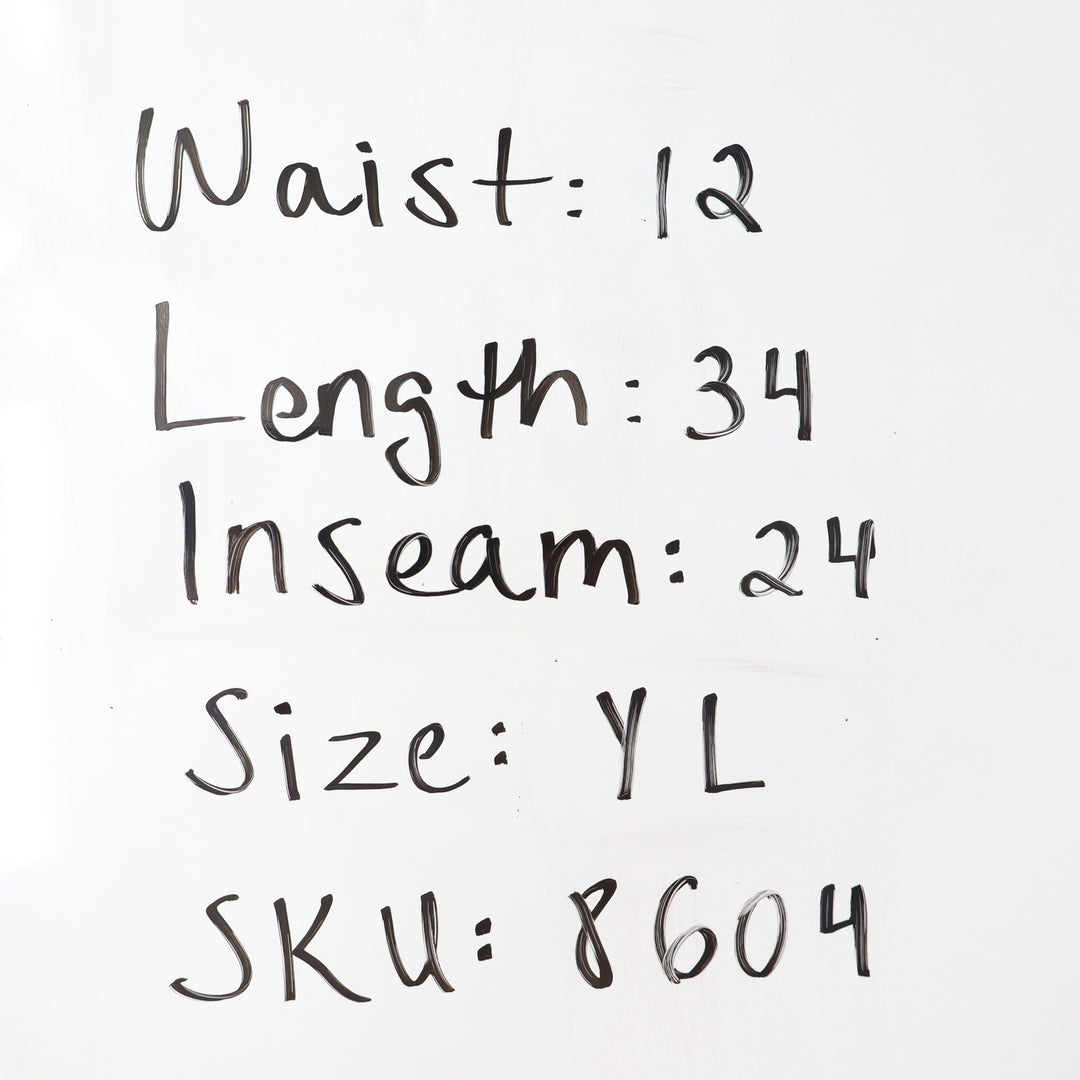 Waist: 12
Length: 34
Inseam: 24
Size: YL
SKU: 8604